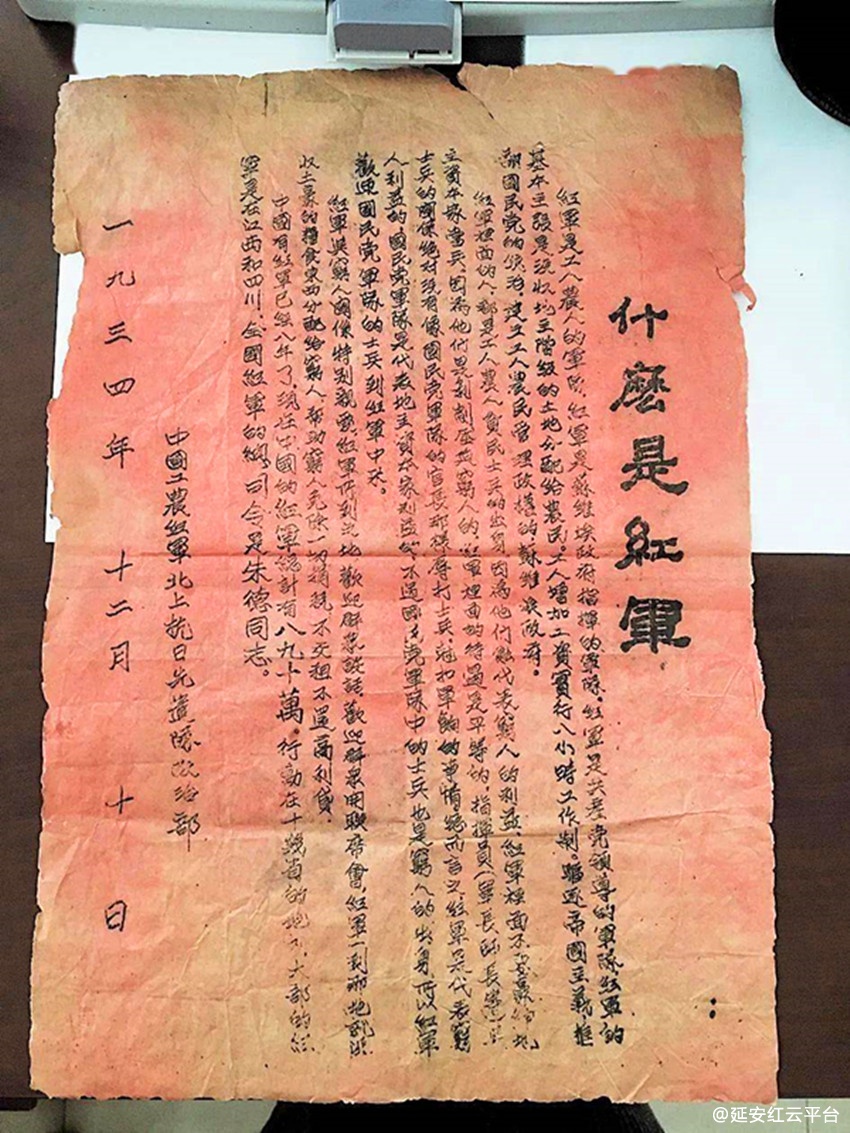 什麽是紅軍
紅軍是工人農人的軍隊，紅軍是蘇維埃政府指揮的軍隊。紅軍是共產党領導的軍隊，紅軍的
基本主張是沒收地主階級的土地分配給農民。工人增加工資實行八小時工作制。驅逐帝國主義，推
翻國民党的統治，建立工人農民管理政權的，蘇維埃政府。
紅軍裡面的人，都是工人農人貧民士兵的出身，因為他們能代表窮人的利益，紅軍裡面不要豪紳地
主資本家當兵，因為他們是剝削壓 窮人的，紅軍裡面的待遇是平等的，指揮員（軍長師長 
士兵的關係絕对沒有像國民党軍隊的官長那樣辱打士兵，尅扣軍餉的事情，總而言之紅軍是代表窮
人利益的，國民党軍隊是代表地主資本家利益的，不過國民党軍隊中的士兵也是窮人的出身，所以紅軍
歡迎國民党軍隊的士兵到紅軍中來。
紅軍與窮人關係特別親 ，紅軍所到之地歡迎群衆談話，歡迎群衆開聯席會，紅軍一到那地就沒
收土豪的糧食東西分配給窮人，帮助窮人免除一切捐稅，不交租不還高利貸，
中國有紅軍已經八年了，現在中國的紅軍總計有八九十萬。行動在十幾省的地方，大部的紅
軍是在江西和四川，全國紅軍的總司令是朱德同志。
中國工農紅軍北上抗日先遣隊政治部
一九三四年 十二月 十日
@延安红云平台